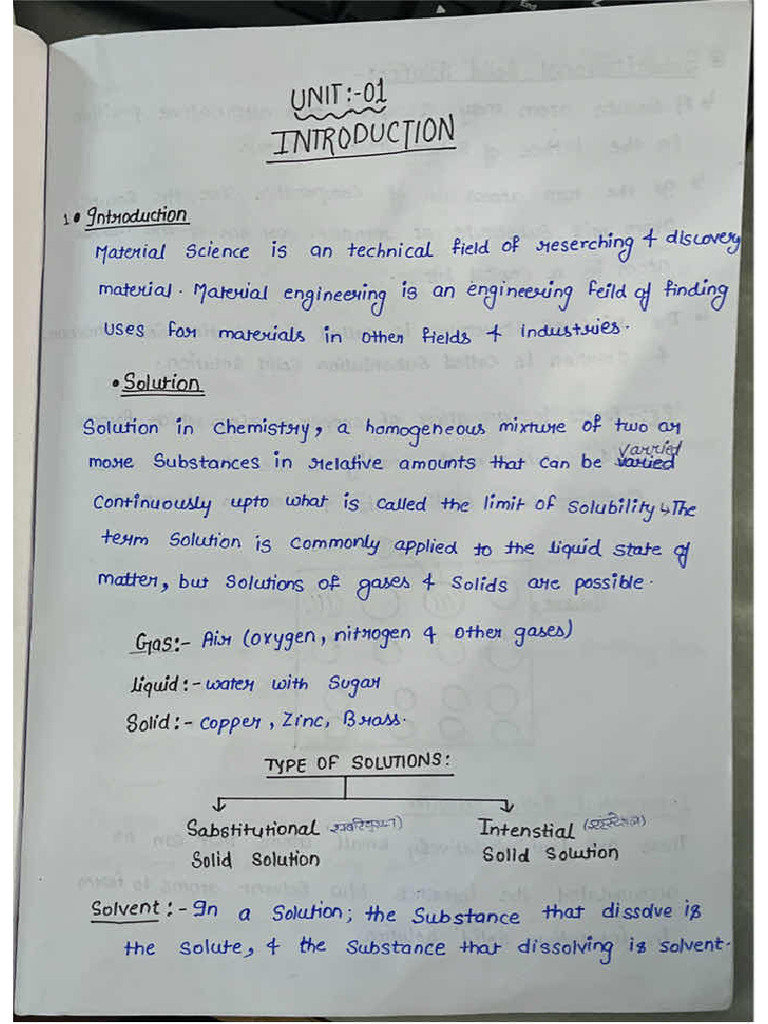 UNIT:-01
INTRODUCTION
1• Introduction
Material Science is an technical field of reserching & discovery
material. Material engineering is an engineering feild of finding
uses for materials in other fields & industries.
• Solution
Solution in chemistry, a homogeneous mixture of two or
more Substances in relative amounts that can be varried
Continuously upto what is called the limit of solubility ↳ The
term Solution is commonly applied to the liquid state of
matter, but solutions of gases & solids are possible.
Gas:- Air (oxygen, nitrogen & other gases)
Liquid:- water with Sugar
Solid:- copper, Zinc, Brass.
TYPE OF SOLUTIONS:
Sabstitutional Intenstial
Solid Solution Solid Solution
Solvent:- In a Solution; the Substance that dissolve is
the solute, & the Substance that dissolving is solvent.